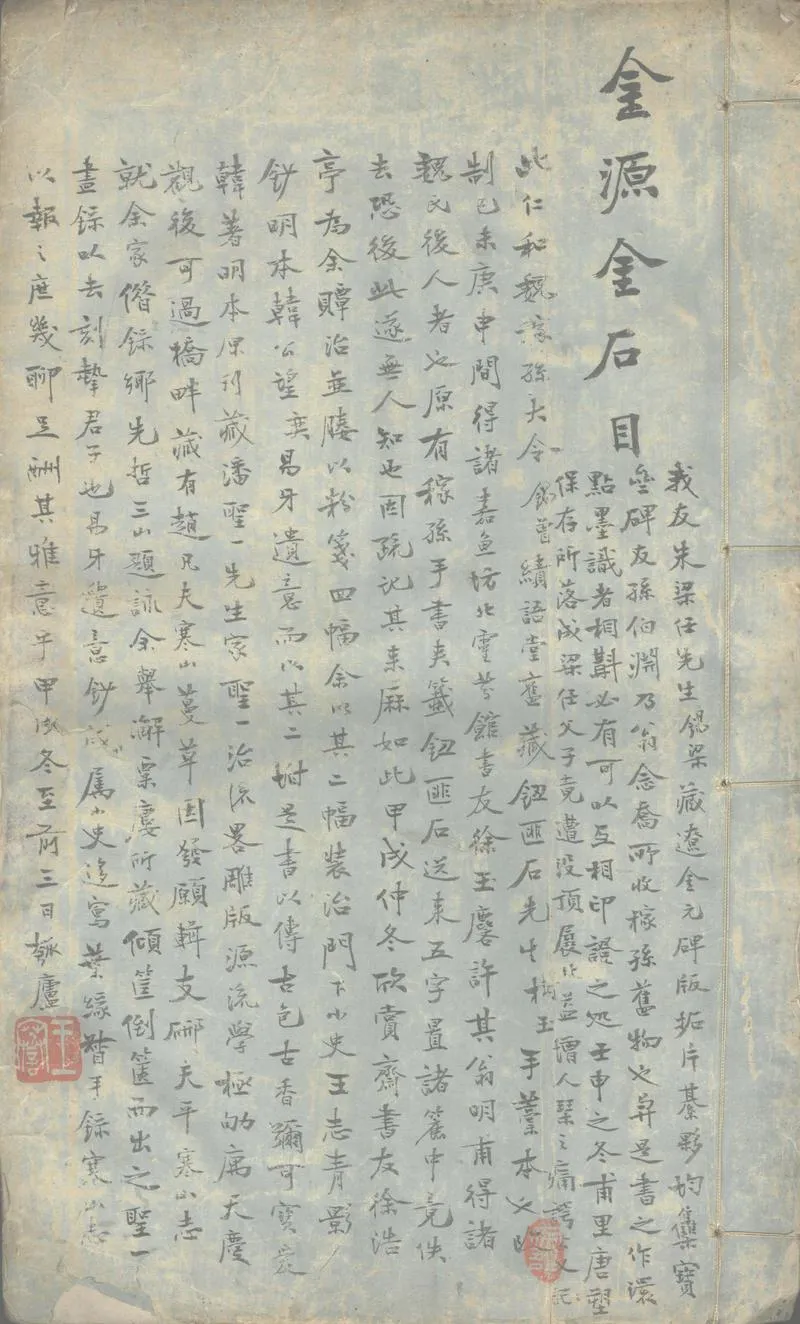 金源金石目
我友朱梁任先生錫梁藏遼金元碑版拓片綦夥均集寶
碑友孫伯淵乃翁念喬所收稼孫舊物也异是書之作濃
點墨識者相斠必有可以互相印證之処壬申之冬甫里唐塑
保存所落成梁任父子竟遭没頂展此益增人琹之痛
此仁和魏稼孫大令錫曾績語堂舊藏鈕匪石先生樹玉手藁本也
制己未庚申間得諸嘉魚坊北靈芬館書友徐玉麐許其翁明甫得諸
魏氏後人者也原有稼孫手書夾籤鈕匪石送來五字置諸篋中竟佚
去恐後此遂無人知也因疏記其来厤如此甲戌仲冬欣賞齋書友徐浩
亭為余贉治並媵以粉箋四幅余以其二幅装治門下小史王志青影
鈔明本韓公望奕易牙遺意而以其二坿是書以傳古色古香彌可寶
韓著明本原刊藏潘聖一先生家聖一治流畧雕版源流學極劬厲天慶
觀後可過橋畔藏有趙凡夫寒山蔓草因發願輯支硎天平寒山志
就余家僭録鄉先哲三山題詠余舉澥粟廔所藏傾筐倒篋而出之聖一
盡録以去刻摯君子也易牙遺意鈔成属小史迻寫葉緣督手録寒山志
以報之庶幾聊足酬其雅意乎甲戌冬至前三日瓠廬